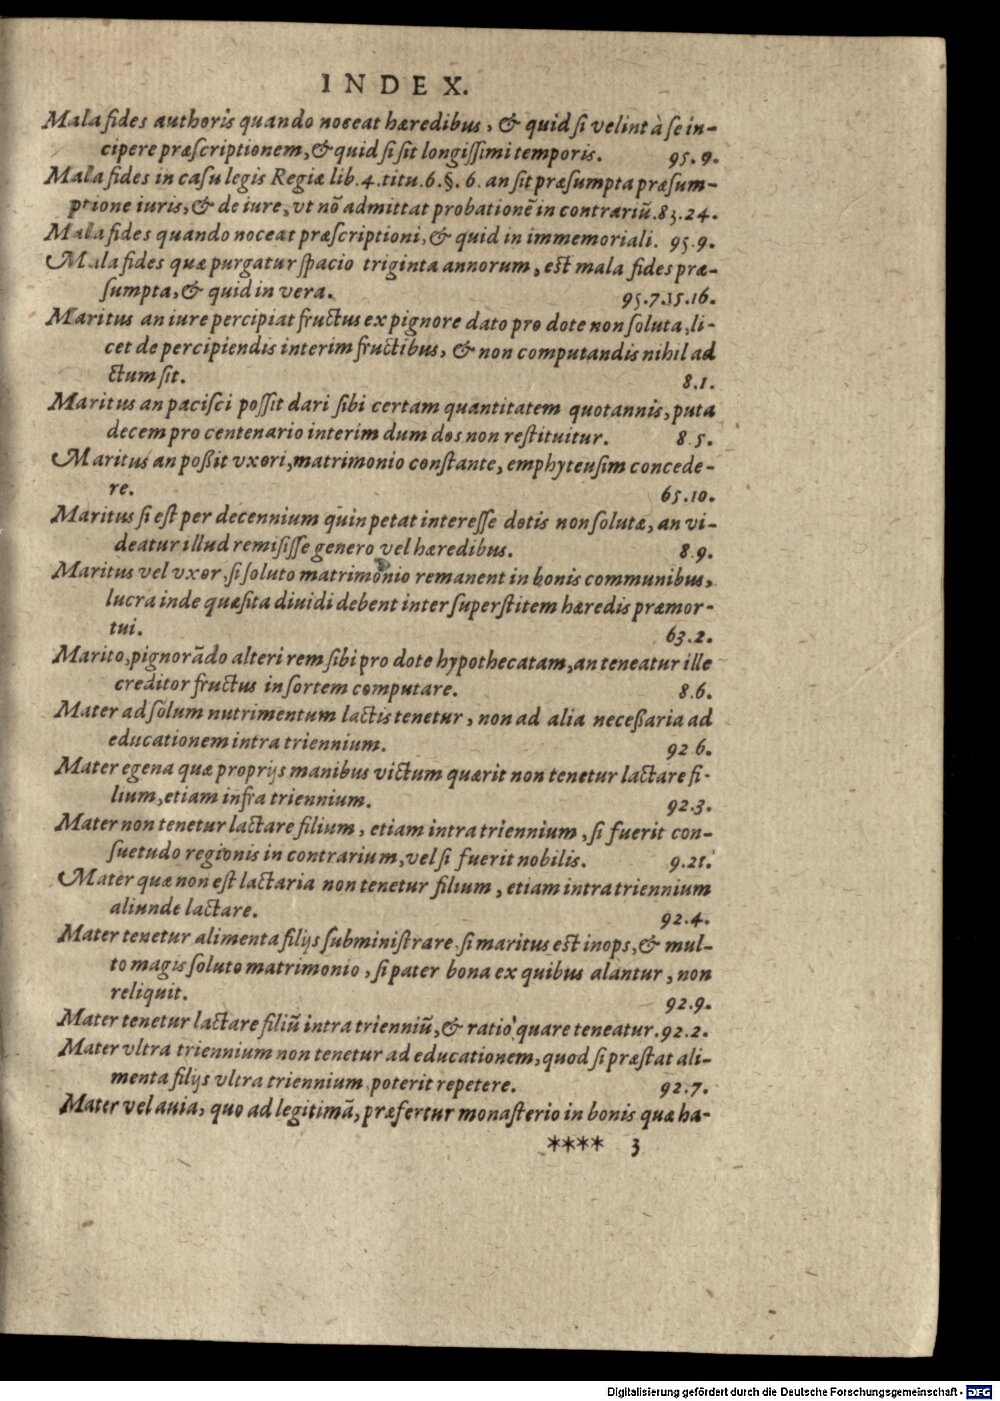 INDEX.
Mala fides authoris quando noceat hæredibus, & quid si velint à se in-
cipere præscriptionem, & quid si sit longissimi temporis. 95.9.
Mala fides in casu legis Regiæ lib.4.titu.6.§.6. an sit præsumpta præsum-
ptione iuris, & de iure, vt nõ admittat probationẽ in contrariũ. 83.24.
Mala fides quando noceat præscriptioni, & quid in immemoriali. 95.9.
Mala fides quæ purgatur spacio triginta annorum, est mala fides præ-
sumpta, & quid in vera. 95.7.15.16.
Maritus an iure percipiat fructus ex pignore dato pro dote non soluta, li-
cet de percipiendis interim fructibus, & non computandis nihil ad
ctum sit. 8.1.
Maritus an pacisci possit dari sibi certam quantitatem quotannis, puta
decem pro centenario interim dum dos non restituitur. 8.5.
Maritus an poßit vxori, matrimonio constante, emphyteusim concede-
re. 65.10.
Maritus si est per decennium quin petat interesse dotis non solutæ, an vi-
deatur illud remisisse genero vel hæredibus. 8.9.
Maritus vel vxor, si soluto matrimonio remanent in bonis communibus,
lucra inde quæsita diuidi debent inter superstitem hæredis præmor-
tui. 63.2.
Marito, pignorãdo alteri rem sibi pro dote hypothecatam, an teneatur ille
creditor fructus in sortem computare. 8.6.
Mater ad solum nutrimentum lactis tenetur, non ad alia neceßaria ad
educationem intra triennium. 92 6.
Mater egena quæ proprijs manibus victum quærit non tenetur lactare fi-
lium, etiam infra triennium. 92.3.
Mater non tenetur lactare filium, etiam intra triennium, si fuerit con-
suetudo regionis in contrarium, vel si fuerit nobilis. 9.21.
Mater quæ non est lactaria non tenetur filium, etiam intra triennium
aliunde lactare. 92.4.
Mater tenetur alimenta filijs subministrare, si maritus est inops, & mul-
to magis soluto matrimonio, si pater bona ex quibus alantur, non
reliquit. 92.9.
Mater tenetur lactare filiũ intra trienniũ, & ratio quare teneatur. 92.2.
Mater vltra triennium non tenetur ad educationem, quod si præstat ali-
menta filijs vltra triennium poterit repetere. 92.7.
Mater vel auia, quo ad legitimã, præfertur monasterio in bonis quæ ha-
**** 3
Digitalisierung gefördert durch die Deutsche Forschungsgemeinschaft - DFG